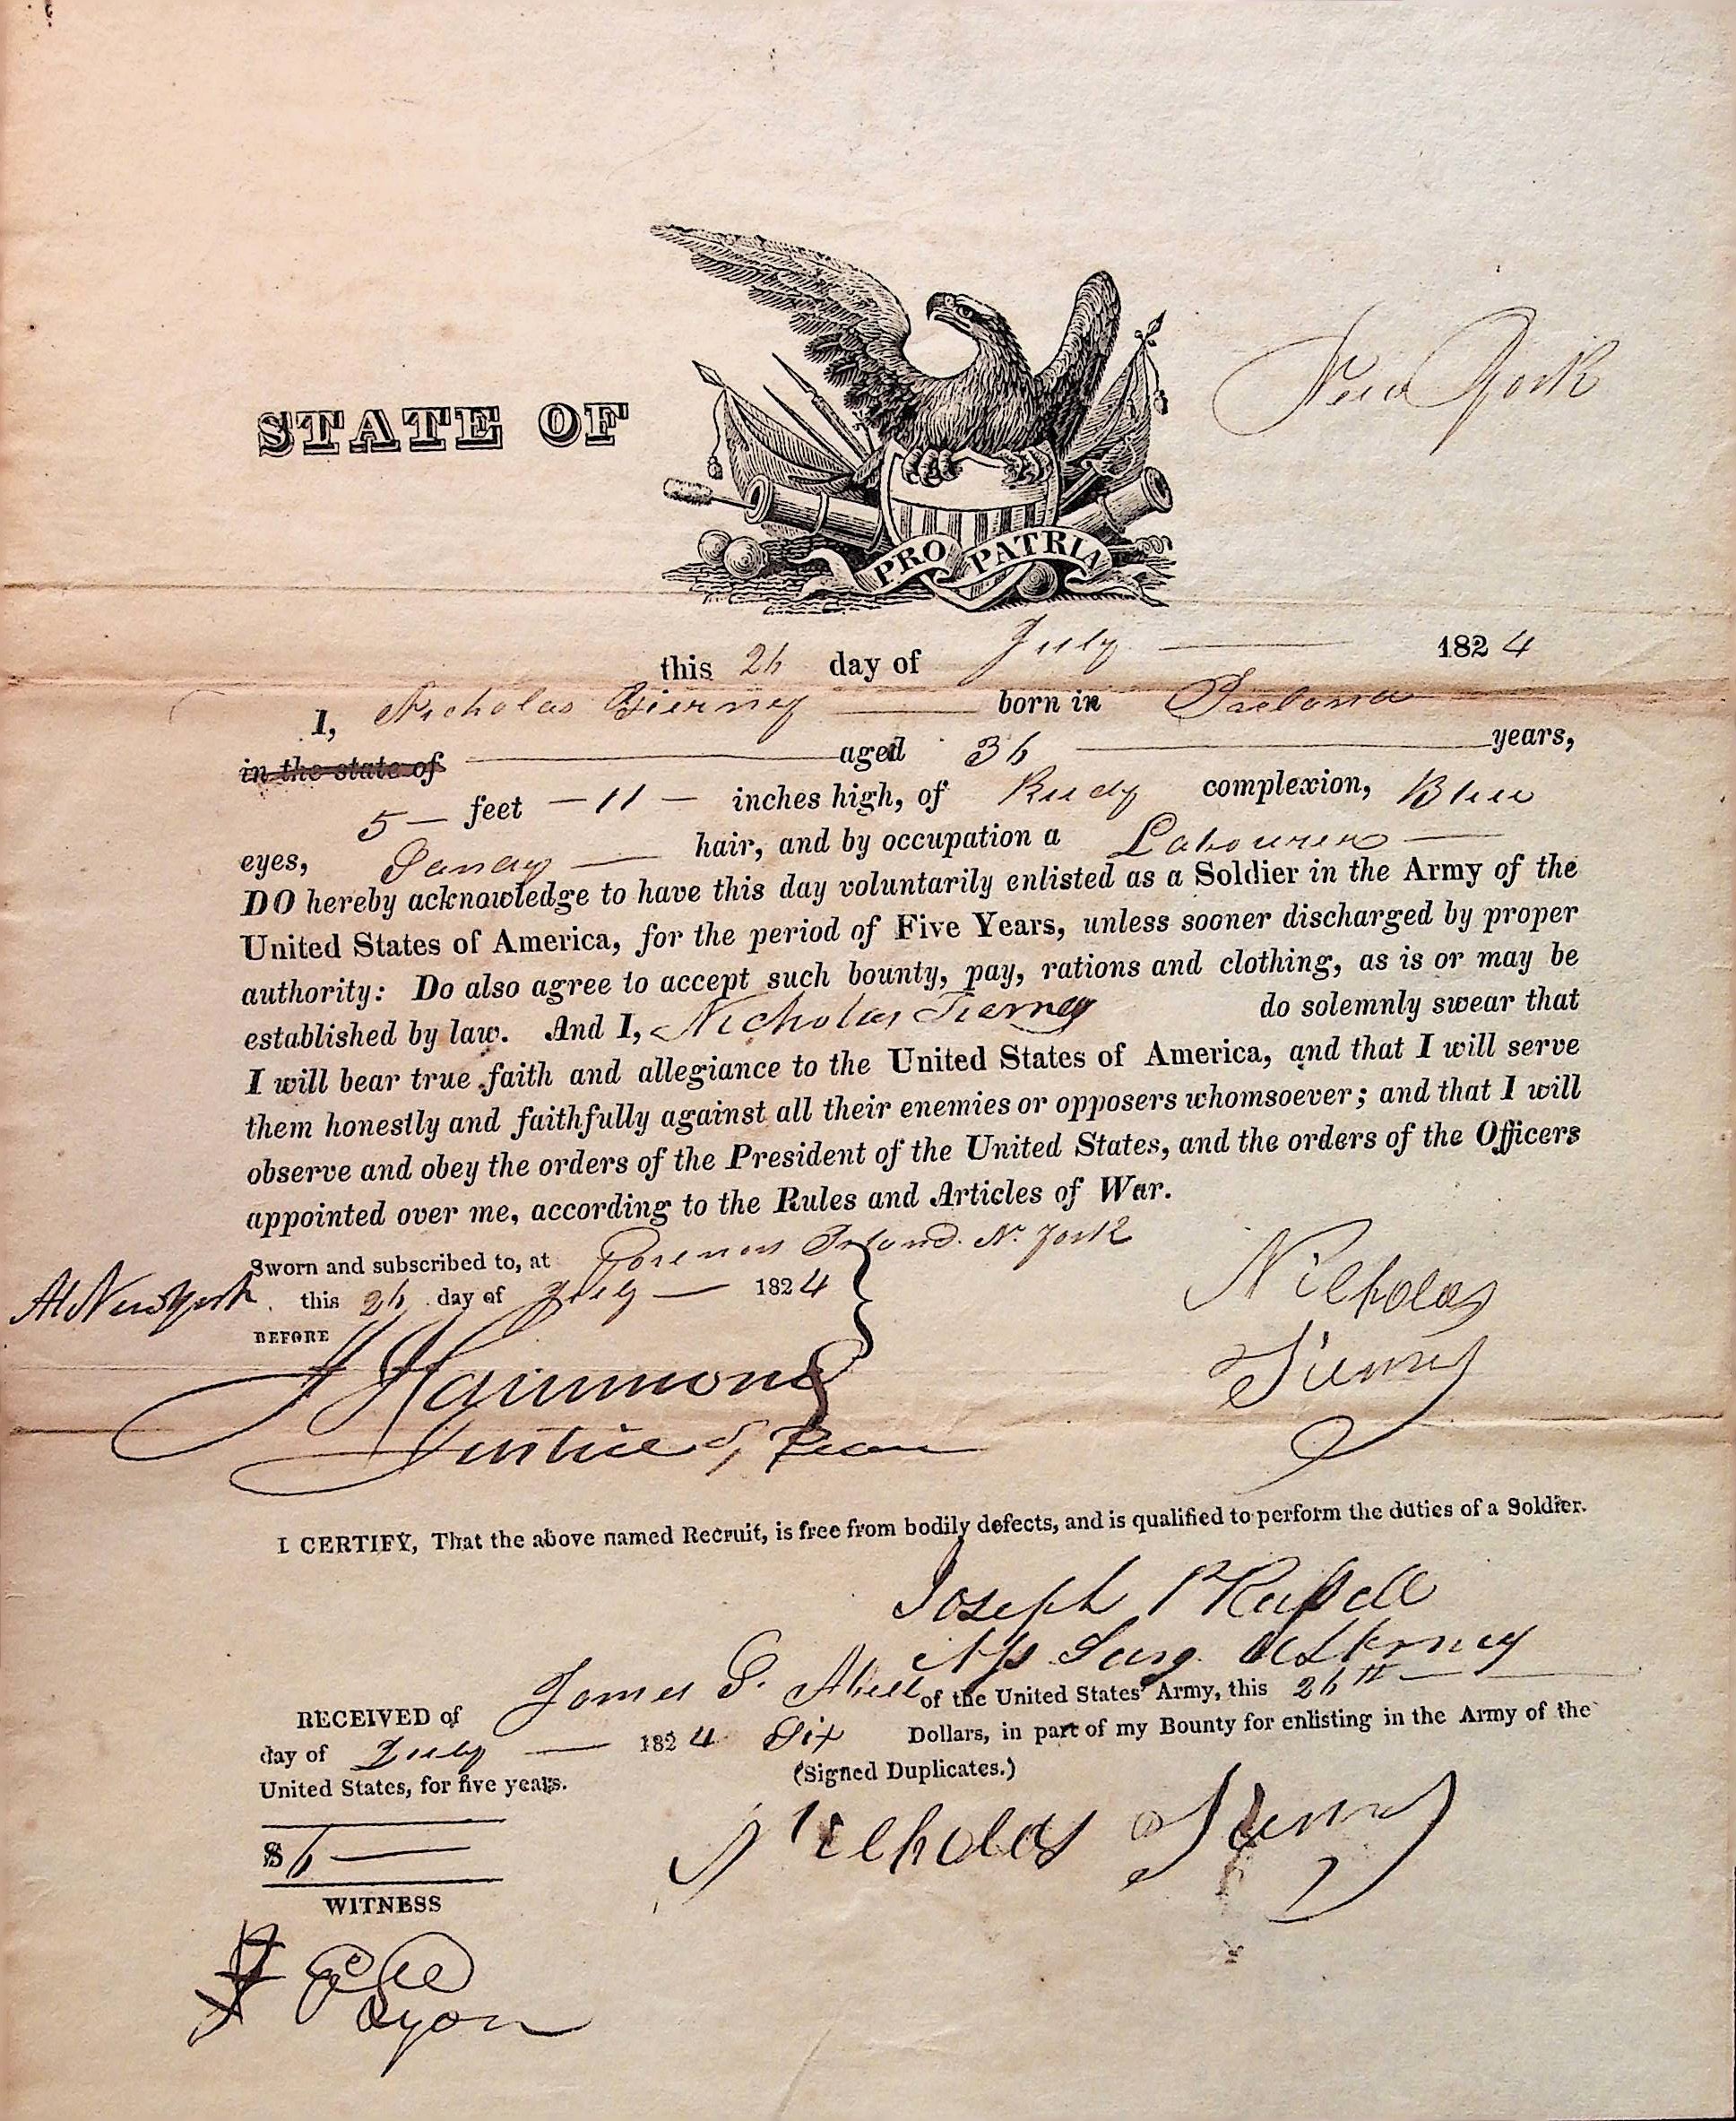 STATE OF
New York
PRO PATRIA
this 26 day of July 1824
I, Nicholas Tierney born in Ireland
in the state of aged 36 years,
5 feet - 11 - inches high, of Rudy complexion, Blue
eyes, Sandy hair, and by occupation a Labourer
DO hereby acknowledge to have this day voluntarily enlisted as a Soldier in the Army of the
United States of America, for the period of Five Years, unless sooner discharged by proper
authority: Do also agree to accept such bounty, pay, rations and clothing, as is or may be
established by law. And I, Nicholas Tierney do solemnly swear that
I will bear true faith and allegiance to the United States of America, and that I will serve
them honestly and faithfully against all their enemies or opposers whomsoever; and that I will
observe and obey the orders of the President of the United States, and the orders of the Officers
appointed over me, according to the Rules and Articles of War.
Sworn and subscribed to, at Governors Island. N. York
At New York this 26 day of July 1824
BEFORE
Nicholas
Tierney
Hammond
Justice of Peace
I CERTIFY, That the above named Recruit, is free from bodily defects, and is qualified to perform the duties of a Soldier.
Joseph P Russell
Ass Surg. Attorney
RECEIVED of James G. Abeel of the United States' Army, this 26th
day of July 1824 Six Dollars, in part of my Bounty for enlisting in the Army of the
United States, for five years.
(Signed Duplicates.)
$6
Nicholas Tierney
WITNESS
Lyon